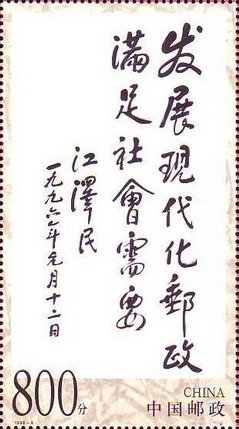 发展现代化郵政
滿足社會需要
江澤民
一九九六年元月十二日
800分
CHINA
中国邮政